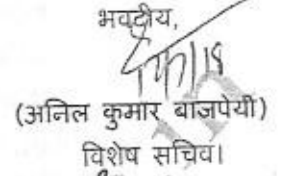 भवदीय,
(अनिल कुमार बाजपेयी)
विशेष सचिव।